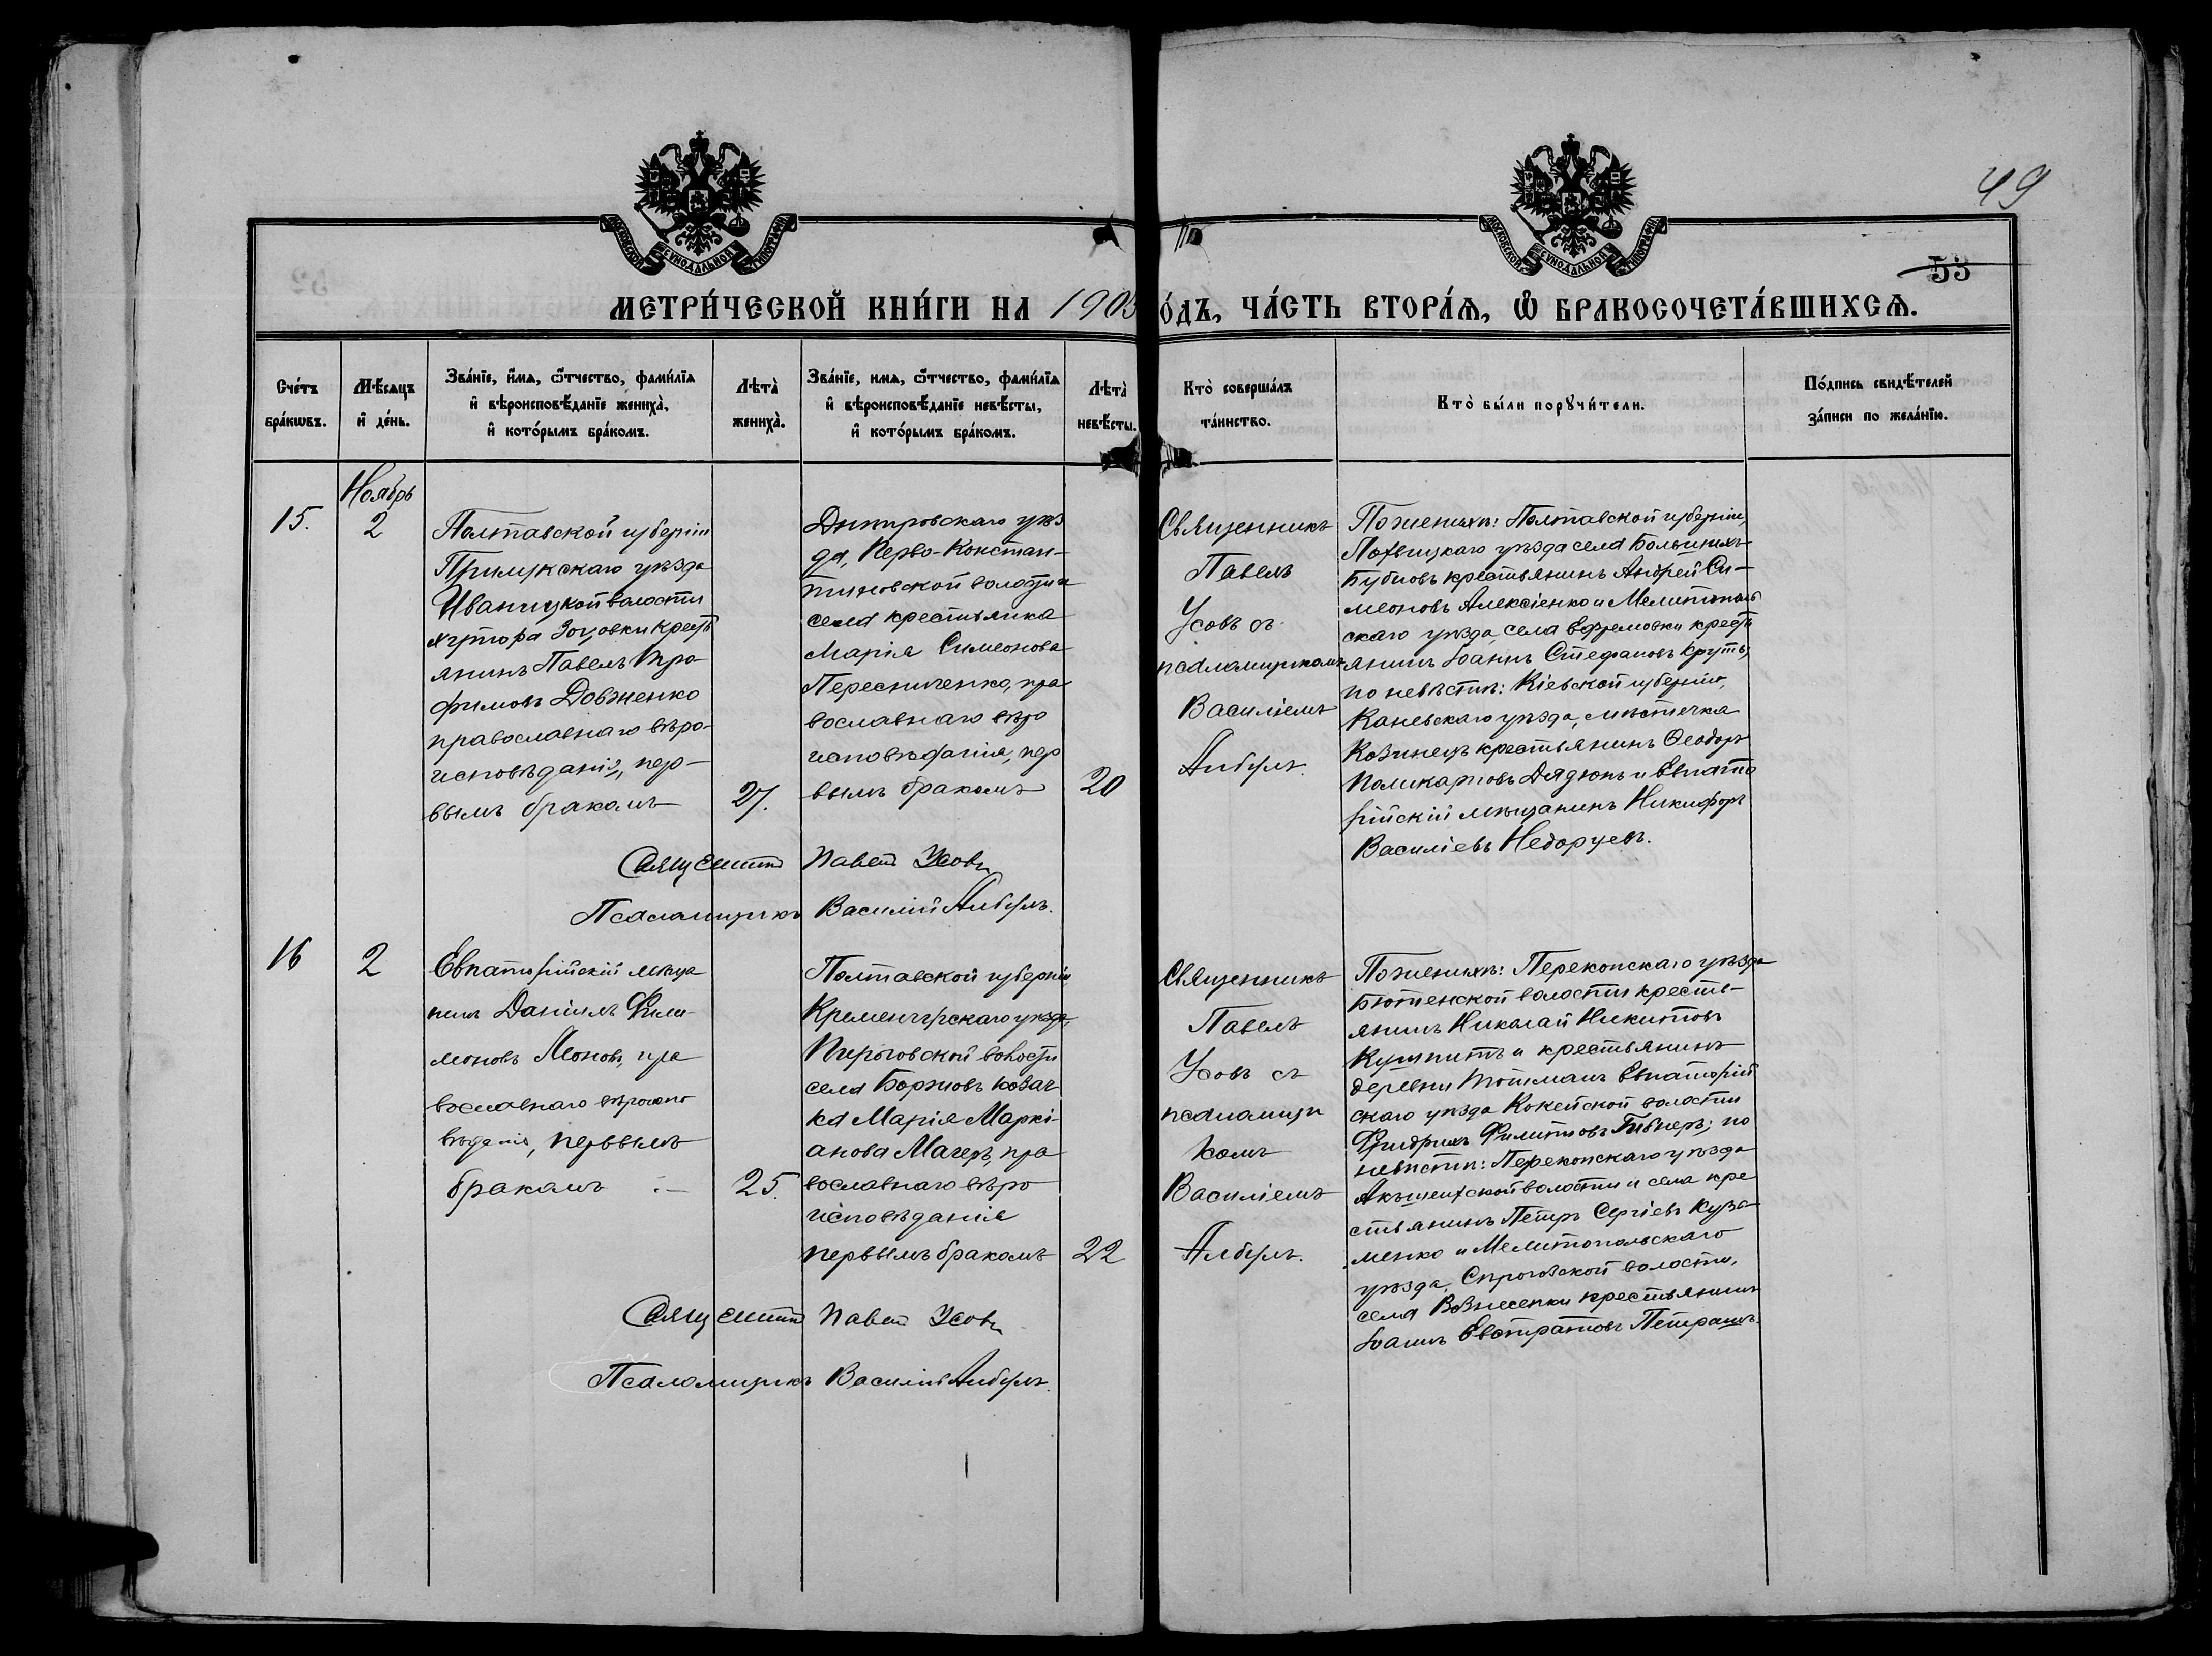 49
53
МОСКОВСКОЙ СѴНОДАЛЬНОЙ ТИПОГРАФІИ
МОСКОВСКОЙ СѴНОДАЛЬНОЙ ТИПОГРАФІИ
МЕТРИ́ЧЕСКОЙ КНИ́ГИ НА 1903
О́ДЪ, ЧА́СТЬ ВТОРА́Ѧ, Ѽ БРАКОСОЧЕТА́ВШИХСѦ.
Сче́тъ
бра́кѡвъ.
Мѣ́сяцъ
и҆ де́нь.
Зва́нїе, и҆́мѧ, ѻ҆́тчество, фами́лїѧ
и҆ вѣроисповѣ́данїе жениха̀,
и҆ кото́рымъ бра́комъ.
Лѣта̀
жениха̀.
Зва́нїе, имѧ, ѻ҆́тчество, фами́лїѧ
и҆ вѣроисповѣ́данїе невѣ́сты,
и҆ кото́рымъ бра́комъ.
Лѣта̀
невѣ́сты.
Кто̀ соверша́лъ
та́инство.
Кто̀ бы́ли порꙋчи́тели.
По́дпись свидѣ́телей
за́писи по жела́нїю.
Ноябрь
15.
2
Полтавской губерніи
Прилукскаго уѣзда
Иваницкой волости
хутора Зоцовки крест
янинъ Павелъ Тро-
фимовъ Довженко
православнаго вѣро-
исповѣданія, пер-
вымъ бракомъ
27.
Днѣпровскаго уѣз
да, Перво-Констан-
тиновской волости
села крестьянка
Марія Симеонова
Пересниченко, пра
вославнаго вѣро
исповѣданія, пер
вымъ бракомъ
20
Священникъ
Павелъ
Усовъ съ
псаломщикомъ
Василіемъ
Поженихѣ: Полтавской губерніи,
Лохвицкаго уѣзда села Большихъ
Бубновъ крестьянинъ Андрей Си-
меоновъ Алексіенко и Мелитополь
скаго уѣзда, села Ефремовки крест
янинъ Іоаннъ Стефановъ Круть,
по невѣстѣ: Кіевской губерніи,
Каневскаго уѣзда, мѣстечка
Козинецъ крестьянинъ Ѳеодоръ
Поликарповъ Дядюнъ и Евпато
рійскій мѣщанинъ Никифоръ
Василіевъ
Священникъ Павелъ Усовъ
Псаломщикъ Василій
16
2
Евпаторійскій мѣща
нинъ Даніилъ Фили-
моновъ пра
вославнаго вѣроиспо
вѣданія, первымъ
бракомъ
25.
Полтавской губерніи
Кременчугскаго уѣзда,
волости
села козач
ка Марія Маркі-
анова Магеръ, пра
вославнаго вѣро
исповѣданія
первымъ бракомъ
22
Священникъ
Павелъ
Усовъ съ
псаломщи
комъ
Василіемъ
Поженихѣ: Перекопскаго уѣзда
Бютенской волости кресть-
янинъ Николай Никитовъ
и крестьянинъ
деревни Евпаторій
скаго уѣзда Кокейской волости
Фридрихъ Филипповъ по
невѣстѣ: Перекопскаго уѣзда
волости и села кре
стьянинъ Петръ Сергіевъ Кузь
менко и Мелитопольскаго
уѣзда, волости,
села Вознесенки крестьянинъ
Іоаннъ Евстратовъ
Священникъ Павелъ Усовъ
Псаломщикъ Василій